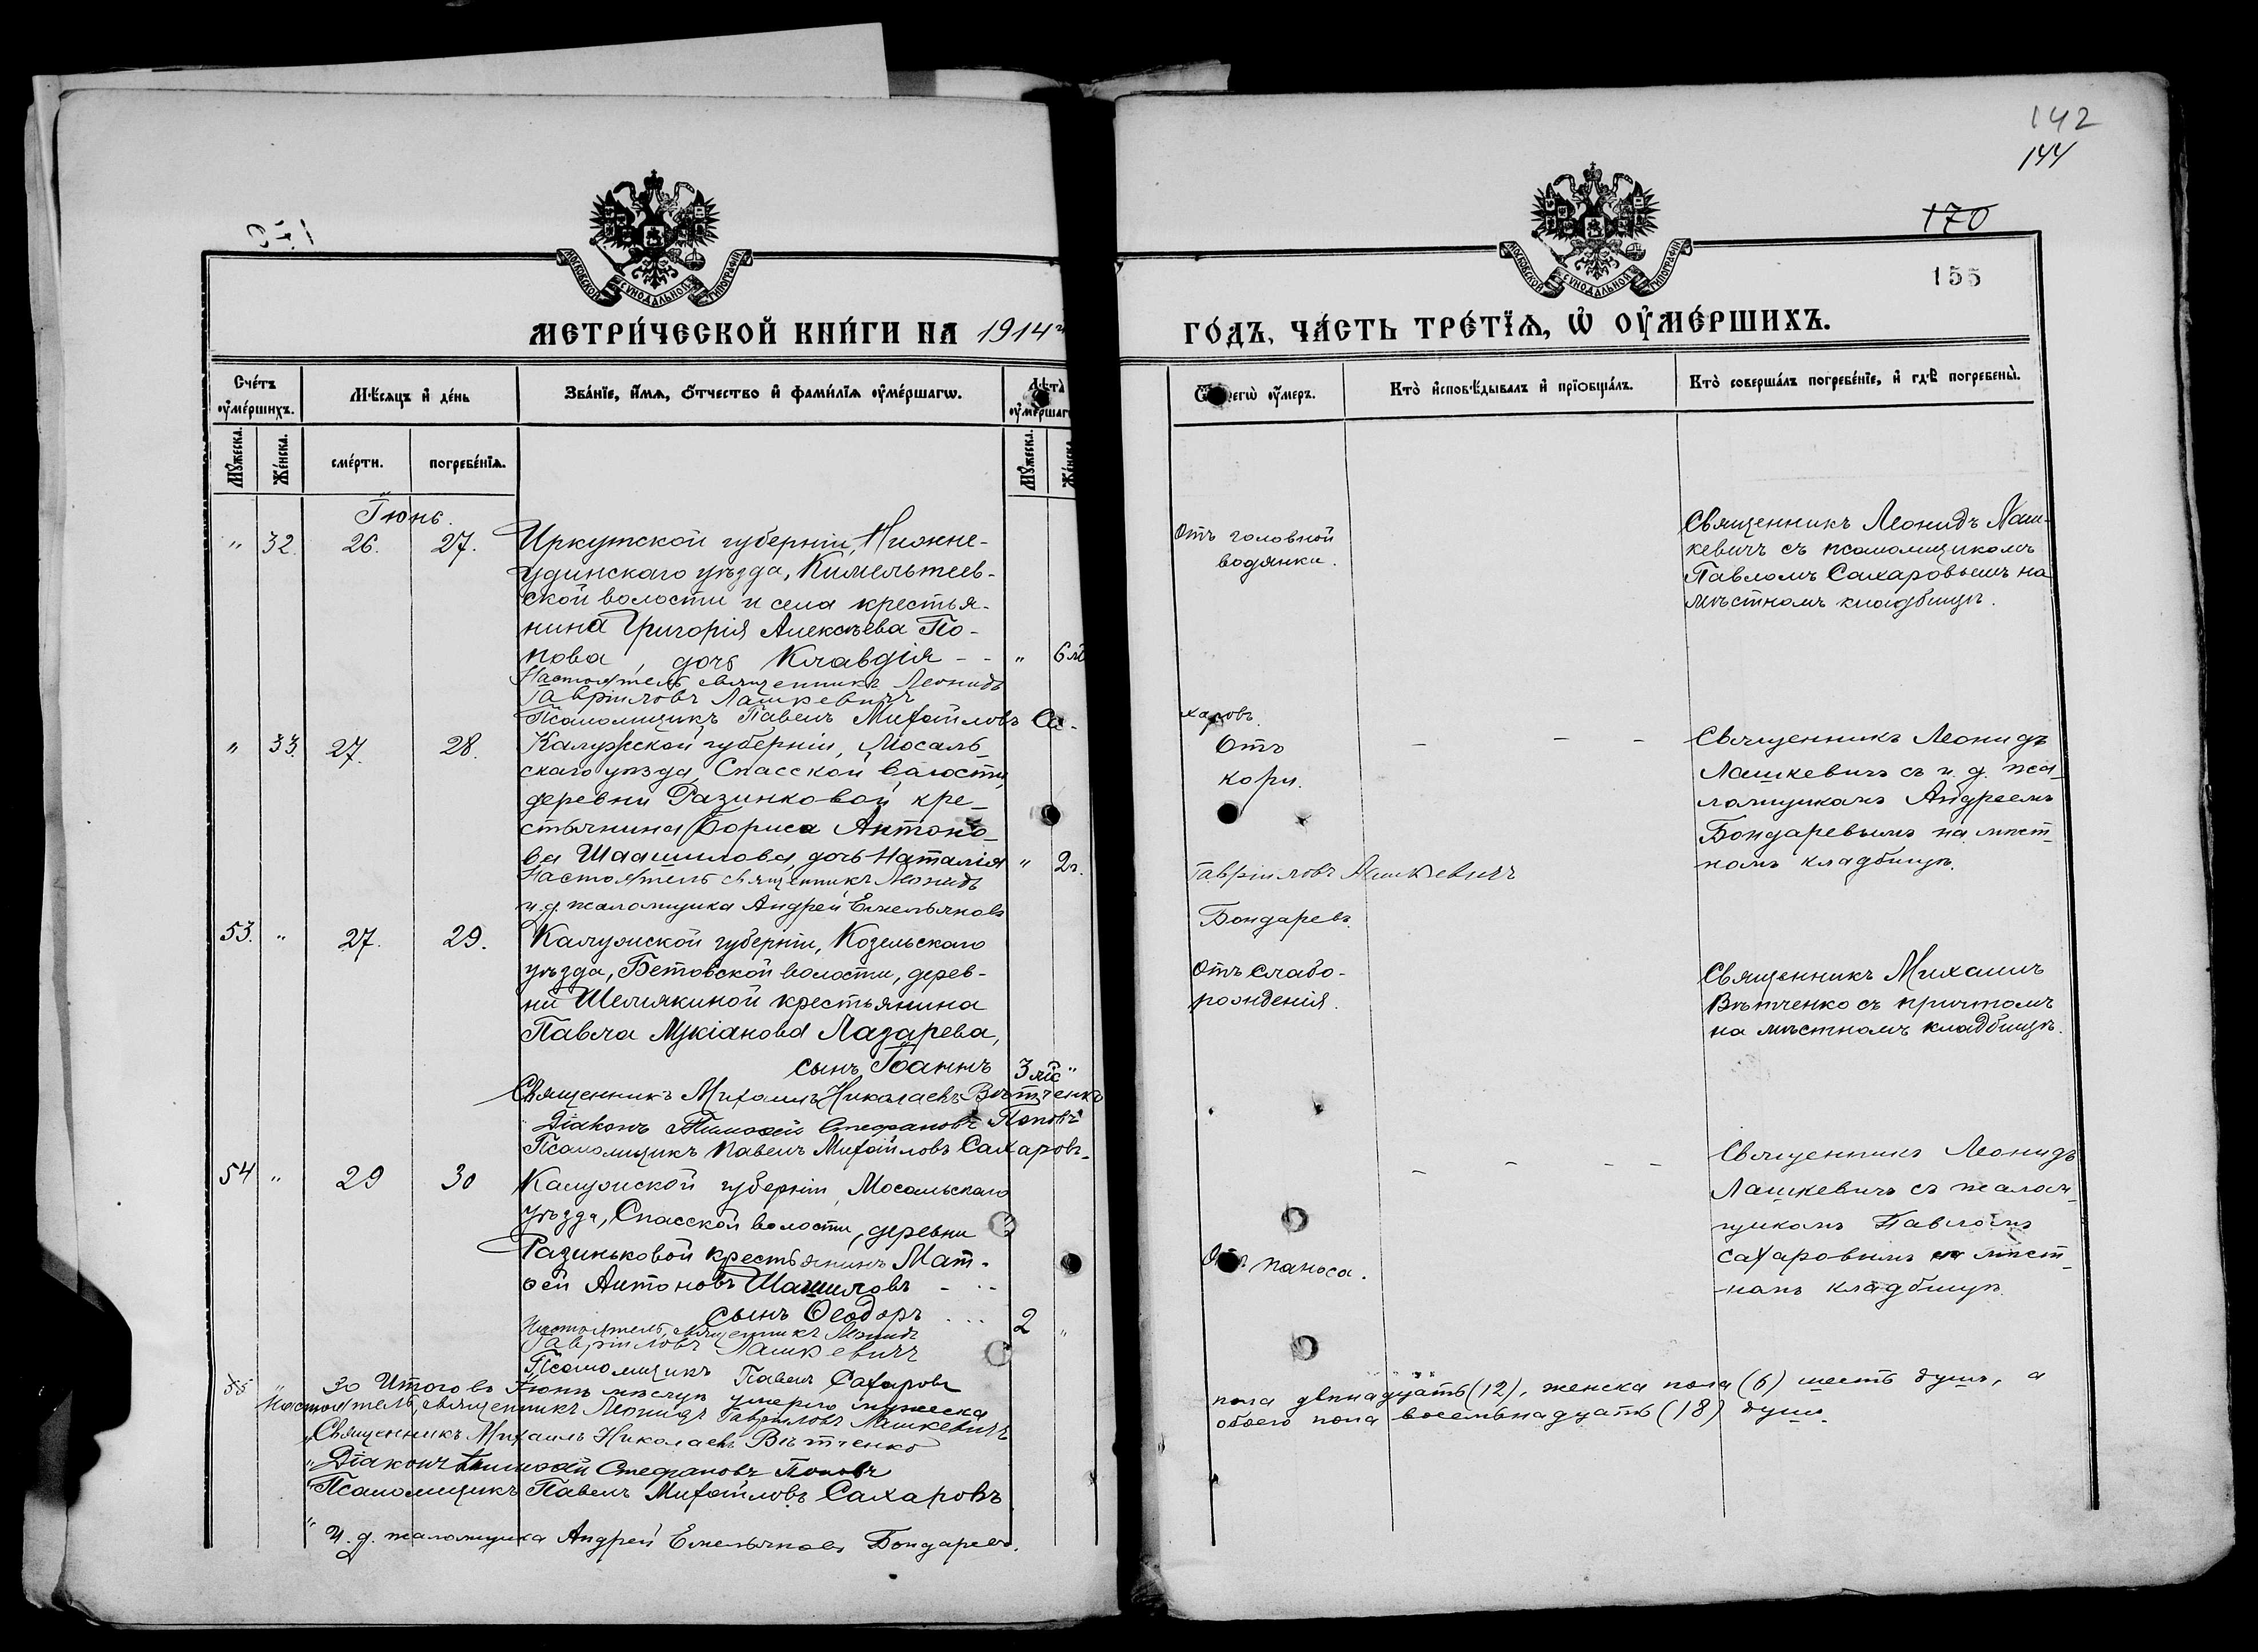 142
144
170
155
МОСКОВСКОЙ СѴНОДАЛЬНОЙ ТИПОГРАФІИ
МОСКОВСКОЙ СѴНОДАЛЬНОЙ ТИПОГРАФІИ
МЕТРИ́ЧЕСКОЙ КНИ́ГИ НА 1914
ГО́ДЪ, ЧА́СТЬ ТРЕ́ТІѦ, Ѽ ОУ҆МЕ́РШИХЪ.
Сче́тъ оу҆ме́ршихъ.
Мѣ́сяцъ и҆ де́нь
Зва́нїе, и҆́мѧ, ѻ҆́тчество и҆ фами́лїѧ оу҆ме́ршагѡ.
Лѣ́та оу҆ме́ршаг
Мꙋ́жеска.
Же́нска.
сме́рти.
погребе́нїѧ.
Мꙋ́жеска.
егѡ̀ оу҆́меръ.
Кто̀ и҆сповѣ́дывалъ и҆ прїѡбща́лъ.
Кто̀ соверша́лъ погребе́нїе, и҆ гдѣ̀ погребены̀.
Іюнь.
" 32. 26. 27. Иркутской губерніи, Нижне-
удинскаго уѣзда, Кимельтеев-
ской волости и села крестья-
нина Григорія Алексѣева По-
пова, дочь Клавдія - - " 6 м
Настоятель священникъ Леонидъ
Гавріиловъ Лашкевичъ
Псаломщикъ Павелъ Михайловъ Са-
харовъ.
Отъ головной
водянки.
Священникъ Леонидъ Лаш-
кевичъ съ псаломщикомъ
Павломъ Сахаровымъ на
мѣстномъ кладбищѣ.
" 33. 27. 28. Калужской губерніи, Мосаль-
скаго уѣзда, Спасской волости,
деревни Разинковой, кре-
стьянина Бориса Антоно-
ва Шашилова, дочь Наталія " 2 г.
Настоятель священникъ Леонидъ
Гавріиловъ Лашкевичъ
и. д. псаломщика Андрей Емельяновъ
Бондаревъ.
Отъ
кори.
Священникъ Леонидъ
Лашкевичъ съ и. д. пса-
ломщикомъ Андреемъ
Бондаревымъ на мѣст-
номъ кладбищѣ.
53. " 27. 29. Калужской губерніи, Козельскаго
уѣзда, Бетовской волости, дерев-
ни Шемякиной крестьянина
Павла Лукіанова Лазарева,
сынъ Іоаннъ 3 мѣс "
Священникъ Михаилъ Николаевъ Вѣтченко
Діаконъ Тимоѳей Стефановъ Поповъ
Псаломщикъ Павелъ Михайловъ Сахаровъ.
Отъ слабо-
рожденія.
Священникъ Михаилъ
Вѣтченко съ причтомъ
на мѣстномъ кладбищѣ.
54 " 29 30 Калужской губерніи, Мосальскаго
уѣзда, Спасской волости, деревни
Разиньковой крестьянинъ Мат-
ѳей Антоновъ Шашиловъ - --
сынъ Ѳеодоръ ... 2 "
Настоятель, священникъ Леонидъ
Гавріиловъ Лашкевичъ
Псаломщикъ Павелъ Сахаровъ
Отъ поноса.
Священникъ Леонидъ
Лашкевичъ съ псалом-
щикомъ Павломъ
Сахаровымъ на мѣст-
номъ кладбищѣ.
55 " 30 Итого въ Іюнѣ мѣсяцѣ умерло мужеска
пола двѣнадцать (12), женска пола (6) шесть душъ, а
обоего пола восемьнадцать (18) душъ.
Настоятель, священникъ Леонидъ Гавріиловъ Лашкевичъ
" Священникъ Михаилъ Николаевъ Вѣтченко
" Діаконъ Тимоѳей Стефановъ Поповъ
" Псаломщикъ Павелъ Михайловъ Сахаровъ
" И. д. псаломщика Андрей Емельяновъ Бондаревъ.